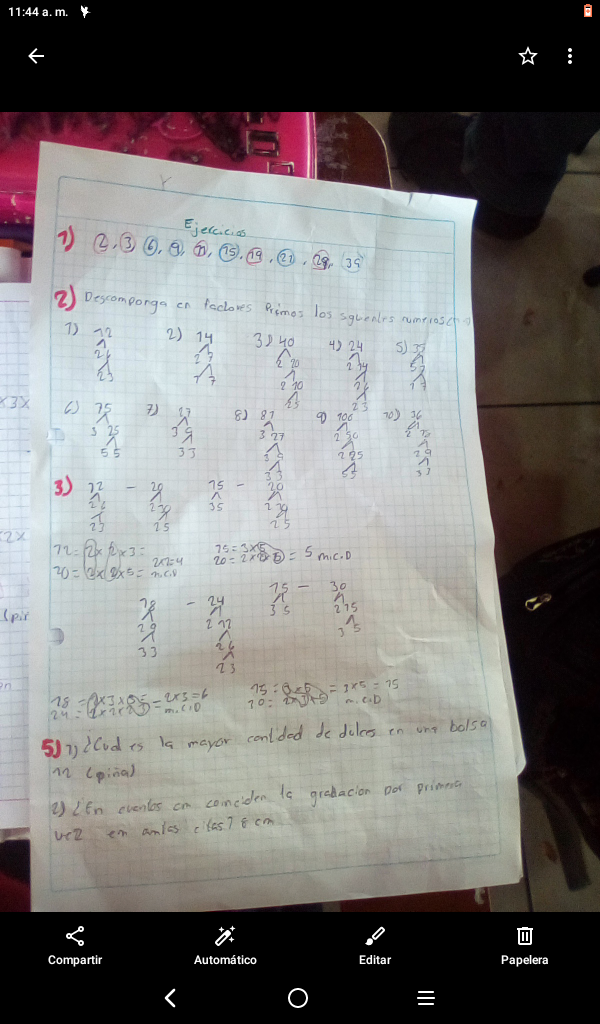 11:44 a. m.
Ejercicios
1) 2, 3, 6, 9, 11, 15, 19, 21, 29, 35
2) Descomponga en factores Primos los siguientes numeros
1) 12 2) 14 3) 40 4) 24 5) 35
2 6 2 7 2 20 2 12 5 7
2 3 1 7 2 10 2 6 1 7
2 5 2 3
6) 75 7) 27 8) 81 9) 100 10) 36
3 25 3 9 3 27 2 50 2 18
5 5 3 3 3 9 2 25 2 9
3 3 5 5 3 3
3) 12 - 20 15 - 20
2 6 2 10 3 5 2 10
2 3 2 5 2 5
12 = 2 x 2 x 3 = 15 = 3 x 5
20 = 2 x 2 x 5 = 2x2=4 m.c.D 20 = 2 x 2 x 5 = 5 m.c.D
18 - 24 15 - 30
2 9 2 12 3 5 2 15
3 3 2 6 3 5
2 3
18 = 2x3x3 = 2x3=6 15 = 3x5 = 3x5=15
24 = 2x2x2x3 = m.c.D m.c.D
5) 1) ¿Cual es la mayor cantidad de dulces en una bolsa
12 (piña)
2) ¿En cuantos cm coinciden la grabacion por primera
vez en ambas citas? 8 cm
Compartir
Automático
Editar
Papelera